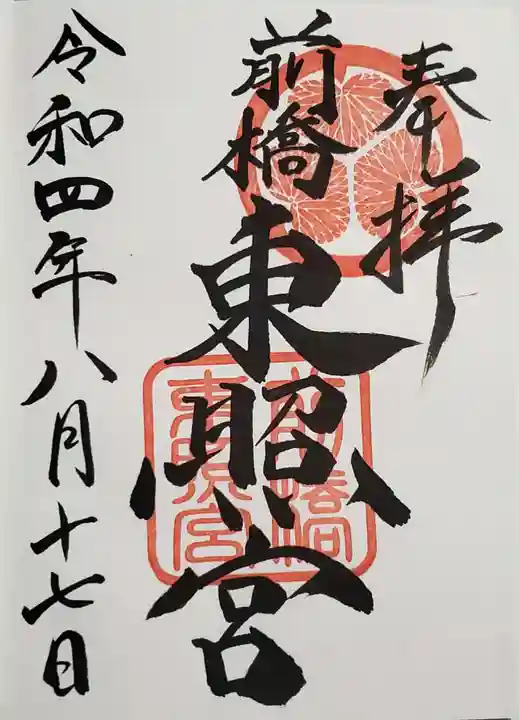 奉拝
前橋
東照宮
前橋
東照宮
令和四年八月十七日